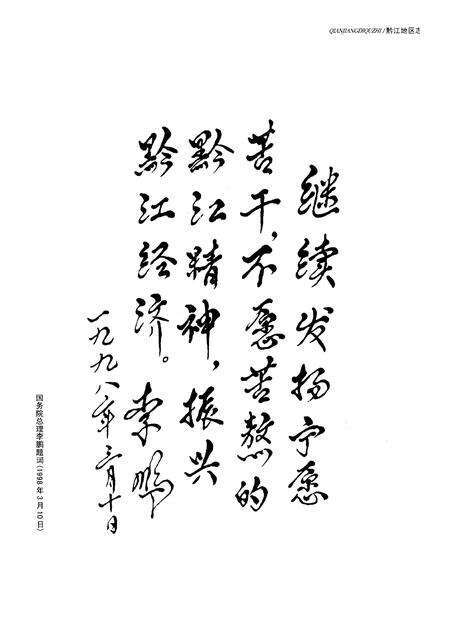 QIANJIANGDIQUZHI / 黔江地区志
继续发扬宁愿
苦干，不愿苦熬的
黔江精神，振兴
黔江经济。李鹏
一九九八年三月十日
国务院总理李鹏题词（1998年3月10日）